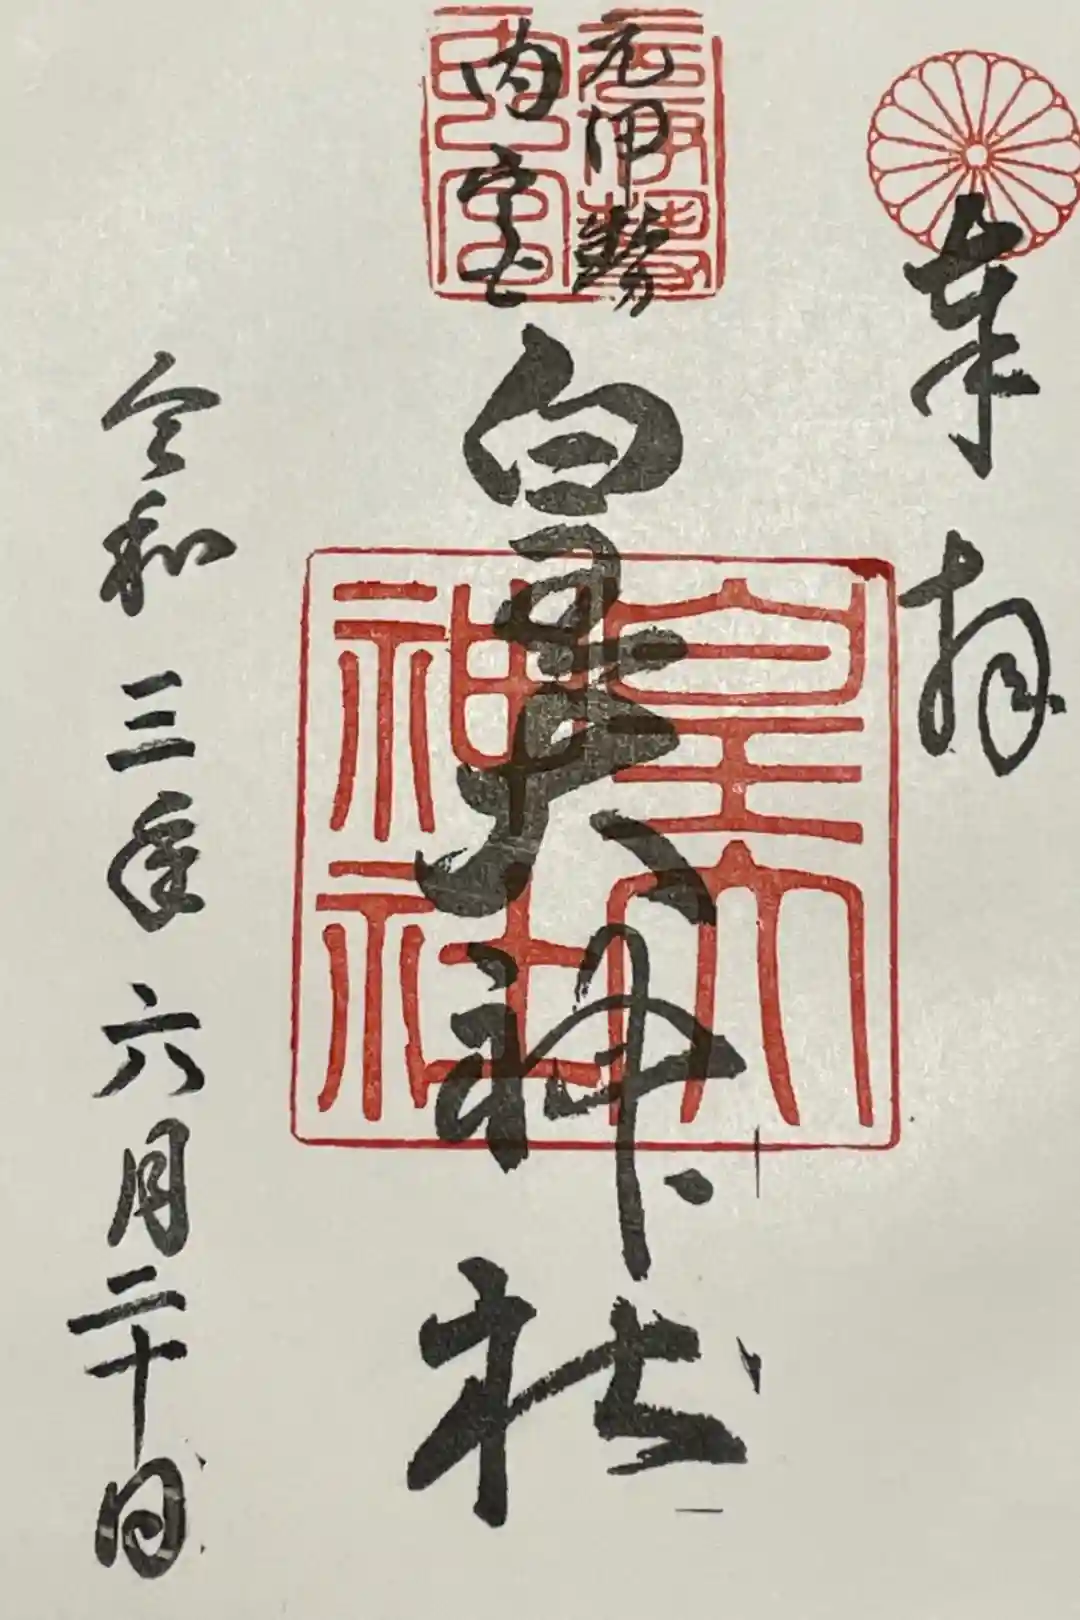 奉拝
元伊勢
内宮
皇大神社
令和三年六月二十日
元伊勢
内宮
皇大
神社